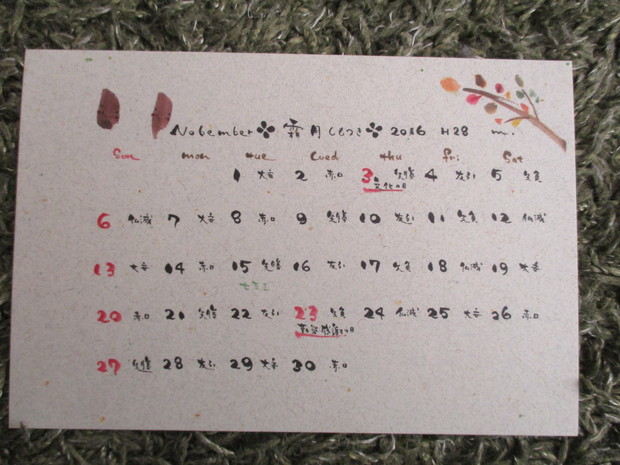 Nobember 霜月 しもつき 2016 H28 m.
Sun mon tue wed thu fri Sat
1 大安 2 赤口 3 先勝 4 友引 5 先負
文化の日
6 仏滅 7 大安 8 赤口 9 先勝 10 友引 11 先負 12 仏滅
13 大安 14 赤口 15 先勝 16 友引 17 先負 18 仏滅 19 大安
七五三
20 赤口 21 先勝 22 友引 23 先負 24 仏滅 25 大安 26 赤口
勤労感謝の日
27 先勝 28 友引 29 大安 30 赤口